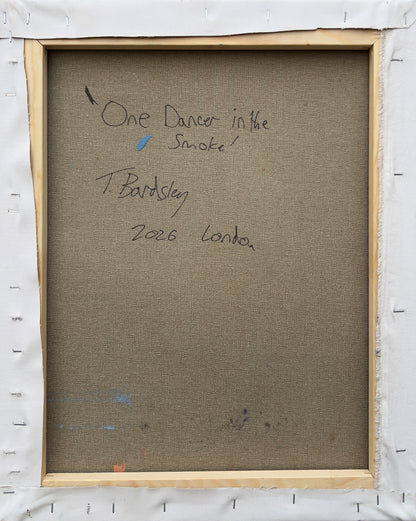 'One Dancer in the
Smoke'
T. Bardsley
2026 London